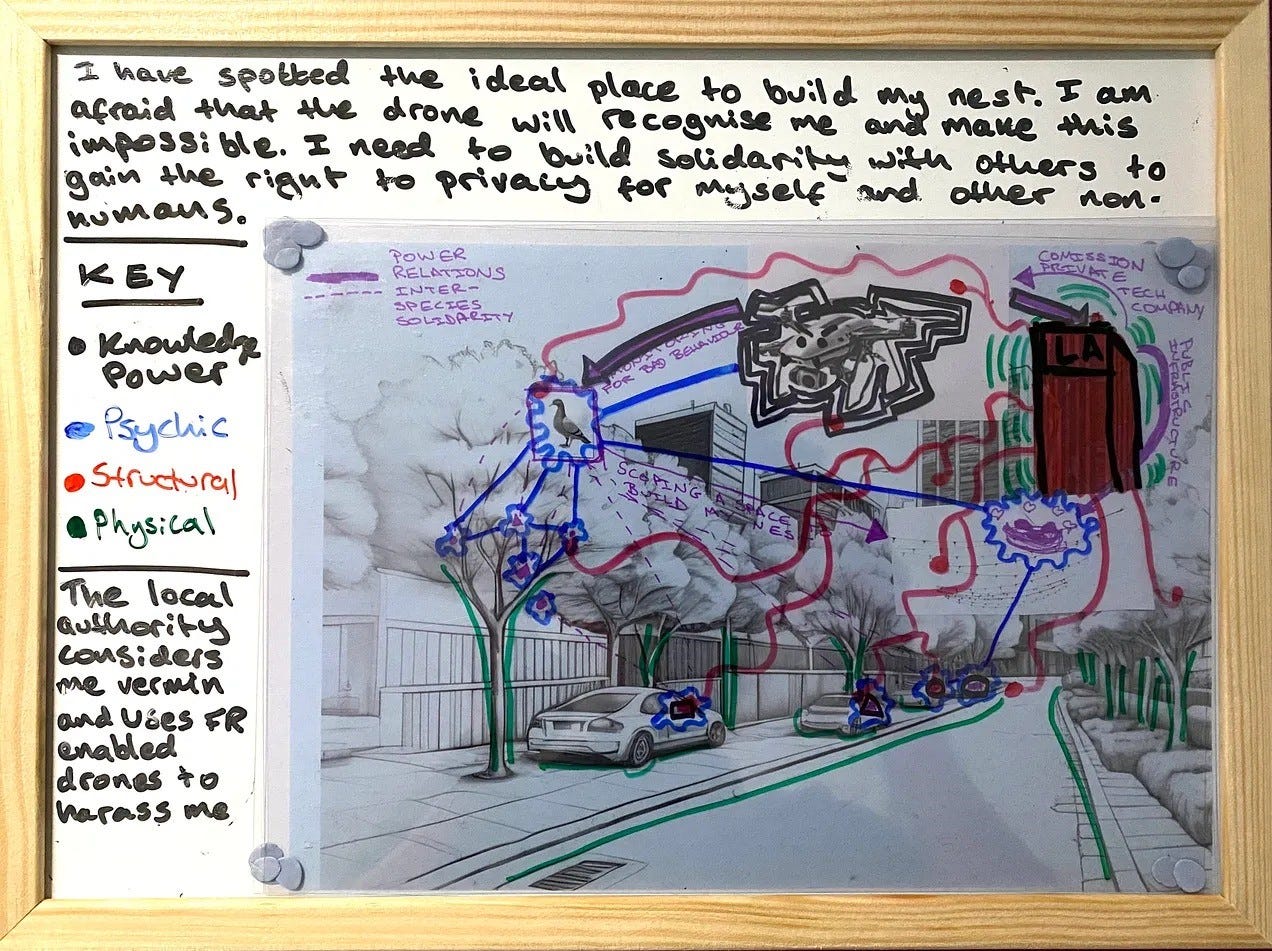 I have spotted the ideal place to build my nest. I am
afraid that the drone will recognise me and make this
impossible. I need to build solidarity with others to
gain the right to privacy for myself and other non-
humans.
KEY
Knowledge
Power
Psychic
Structural
Physical
The local
authority
considers
me vermin
and uses FR
enabled
drones to
harass me
POWER
RELATIONS
INTER-
SPECIES
SOLIDARITY
MONITORING
FOR BAD BEHAVIOUR
COMISSION
PRIVATE
TECH
COMPANY
LA
PUBLIC
INFRASTRUCTURE
SCOPING A SPACE
BUILD